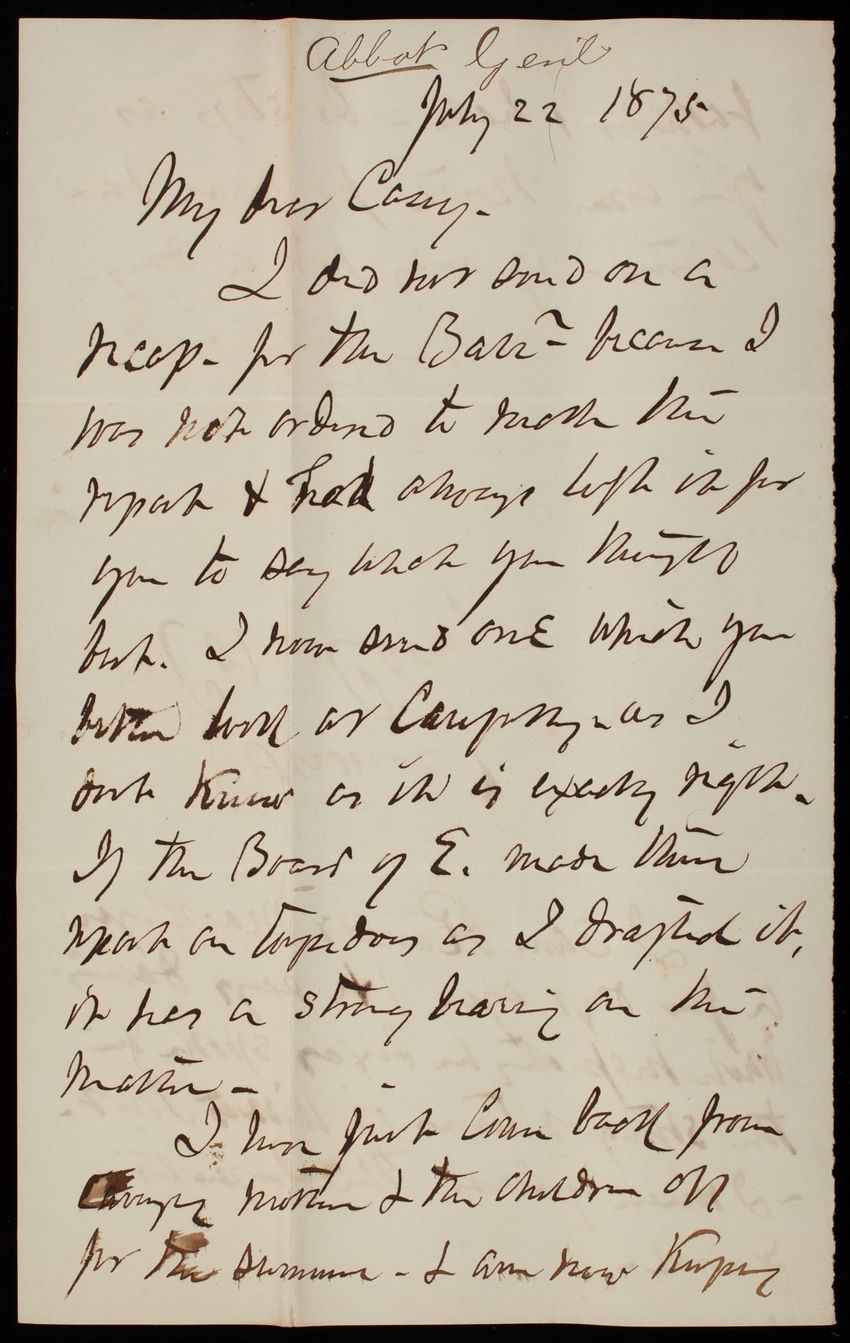 Abbot Genl
July 22 1875
My dear Casey.
I did not send on a
recap- for the Batn - because I
was not ordered to make the
report & had always left it for
you to say what you thought
best. I now send one which you
better look at carefully - as I
dont know as it is exactly right.
If the Board of E. made their
report on torpedoes as I drafted it,
it has a strong bearing on this
matter -
I have just come back from
mother & the children off
for the summer - & am now keeping